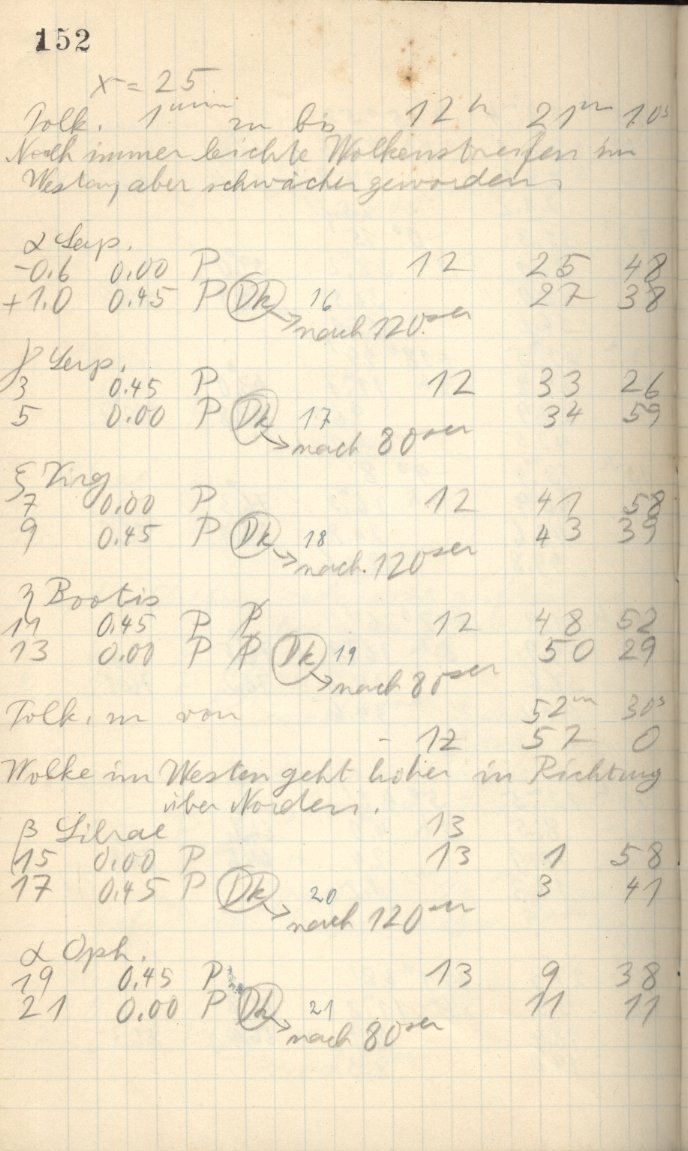 152
x = 25
Folk. 1 mm m bis 12h 21m 10s
Noch immer leichte Wolkenstreifen im
Westen, aber schwächer geworden
α Serp.
-0.6 0.00 P 12 25 48
+1.0 0.45 P Dk 16 27 38
→ nach 120 sec
β Serp.
3 0.45 P 12 33 26
5 0.00 P Dk 17 34 59
→ nach 80 sec
ξ Virg
7 0.00 P 12 41 58
9 0.45 P Dk 18 43 39
→ nach 120 sec
η Bootis
11 0.45 P P 12 48 52
13 0.00 P P Dk 19 50 29
→ nach 80 sec
Folk. m von 52m 30s
- 12 57 0
Wolke im Westen geht höher in Richtung
über Norden.
β Librae 13
15 0.00 P 13 1 58
17 0.45 P Dk 20 3 41
→ nach 120 sec
α Oph.
19 0.45 P 13 9 38
21 0.00 P Dk 21 11 11
→ nach 80 sec